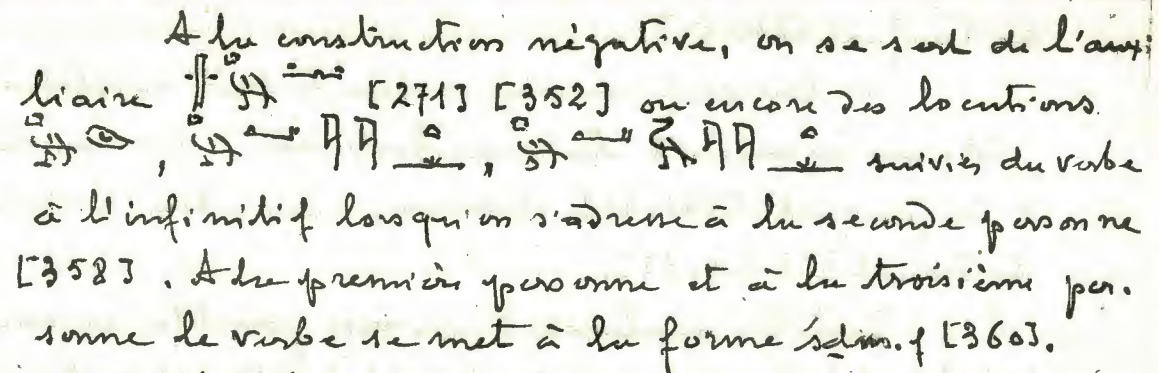 A la construction négative, on se sert de l'auxi
liaire [271] [352] ou encore des locutions
, , suivies du verbe
à l'infinitif lorsqu'on s'adresse à la seconde personne
[358]. A la première personne et à la troisième per-
sonne le verbe se met à la forme śḏm.f [360].